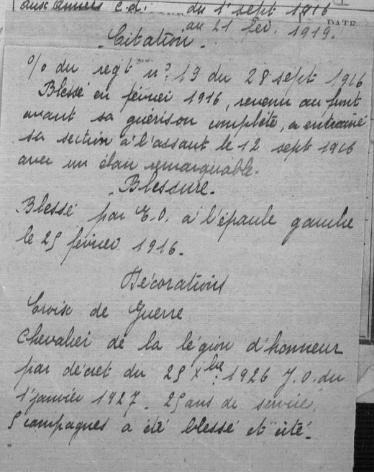 aux armées c.d. du 1er sept 1916
au 21 fev. 1919.
DATE
Citation.
% du regt n° 19 du 28 sept 1916
Blessé en février 1916, revenu au front
avant sa guérison complète, a entrainé
sa section à l'assaut le 12 sept 1916
avec un élan remarquable.
Blessure.
Blessé par E.O. à l'épaule gauche
le 25 février 1916.
Décorations
Croix de Guerre
Chevalier de la légion d'honneur
par décret du 25 Xbre 1926 J.O. du
1er janvier 1927 - 25 ans de service,
5 campagnes a été blessé et cité.